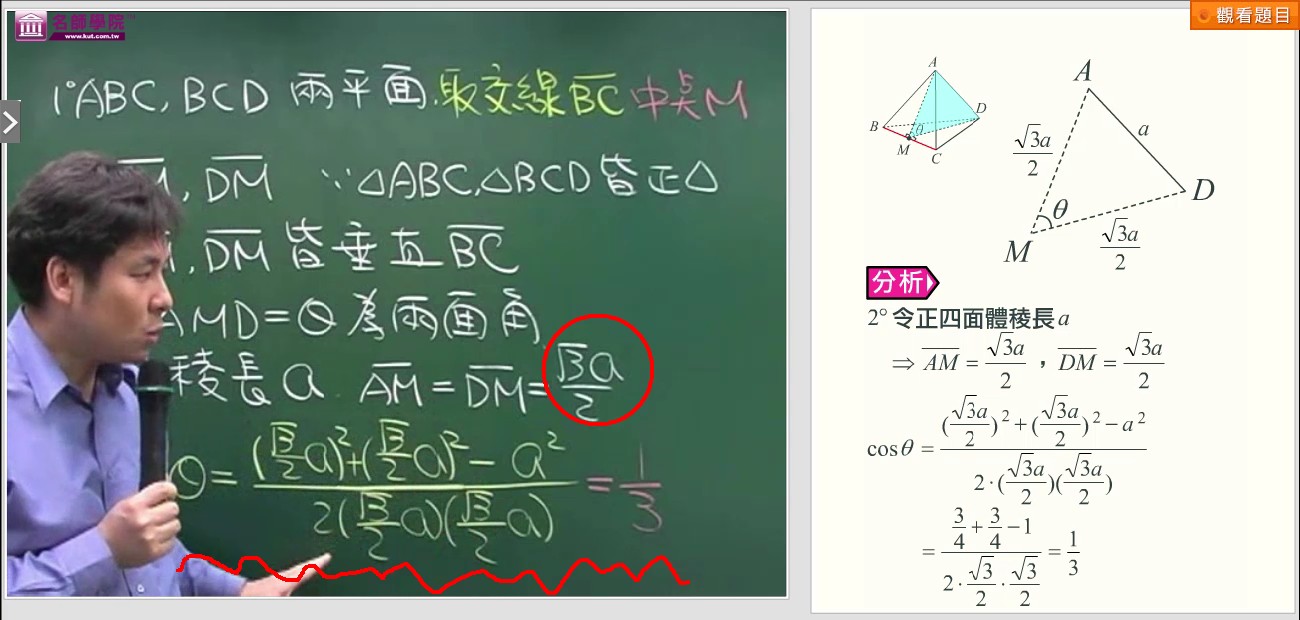 名師學院
www.kut.com.tw
觀看題目
1°ABC, BCD 兩平面,取交線BC̅ 中點M
, D̅M̅ ∵△ABC,△BCD皆正△
, D̅M̅ 皆垂直 B̅C̅
AMD=θ為兩面角
稜長a A̅M̅ = D̅M̅ = √3a/2
θ = ((√3/2 a)²+(√3/2 a)² − a²)/(2(√3/2 a)(√3/2 a)) = 1/3
A
B
D
θ
M
C
A
√3a/2
a
D
θ
√3a/2
M
分析
2° 令正四面體稜長a
⇒ A̅M̅ = √3a/2 , D̅M̅ = √3a/2
cosθ = ((√3a/2)²+(√3a/2)²−a²)/(2·(√3a/2)(√3a/2))
= (3/4+3/4−1)/(2·√3/2·√3/2) = 1/3